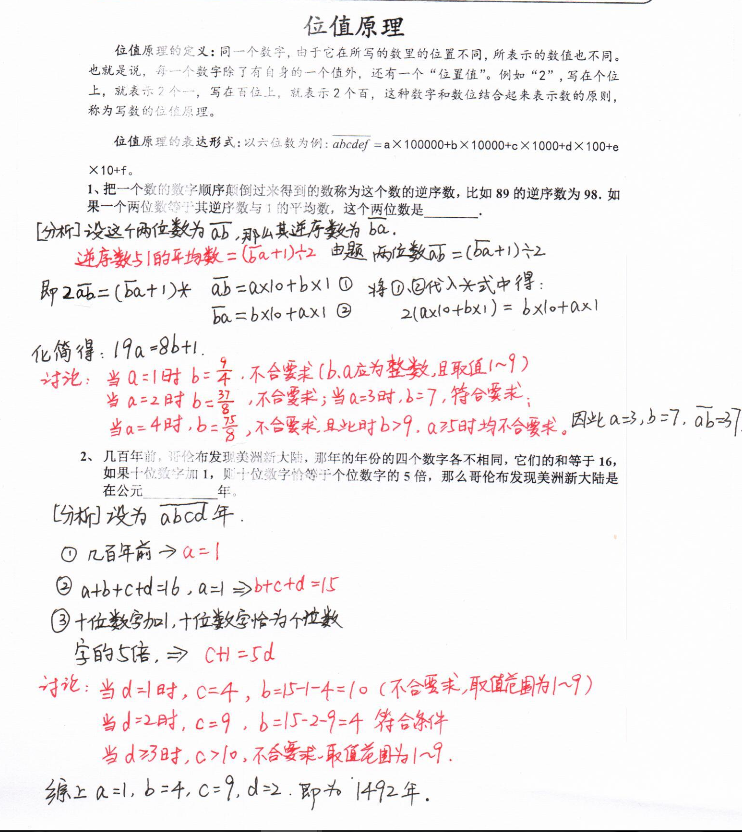 位值原理
位值原理的定义：同一个数字，由于它在所写的数里的位置不同，所表示的数值也不同。
也就是说，每一个数字除了有自身的一个值外，还有一个“位置值”。例如“2”，写在个位
上，就表示2个一，写在百位上，就表示2个百，这种数字和数位结合起来表示数的原则，
称为写数的位值原理。
位值原理的表达形式：以六位数为例：abcdef =a×100000+b×10000+c×1000+d×100+e
×10+f。
1、把一个数的数字顺序颠倒过来得到的数称为这个数的逆序数，比如 89 的逆序数为 98．如
果一个两位数等于其逆序数与 1 的平均数，这个两位数是________．
[分析]设这个两位数为ab，那么其逆序数为ba．
逆序数与1的平均数=(ba+1)÷2 由题 两位数ab=(ba+1)÷2
即2ab=(ba+1)* ab=a×10+b×1 ① 将①、②代入*式中得：
ba=b×10+a×1 ② 2(a×10+b×1)=b×10+a×1
化简得：19a=8b+1.
讨论：当a=1时 b=9/4．不合要求(b、a应为整数，且取值1~9)
当a=2时 b=37/8，不合要求；当a=3时，b=7，符合要求；
当a=4时，b=75/8，不合要求，且此时b>9．a≥5时均不合要求。因此a=3，b=7，ab=37
2、 几百年前，哥伦布发现美洲新大陆，那年的年份的四个数字各不相同，它们的和等于 16，
如果十位数字加 1，则十位数字恰等于个位数字的 5 倍，那么哥伦布发现美洲新大陆是
在公元________年。
[分析]设为abcd年．
① 几百年前→a=1
② a+b+c+d=16，a=1 ⇒b+c+d=15
③十位数字加1，十位数字恰为个位数
字的5倍，⇒ c+1=5d
讨论：当d=1时，c=4，b=15-1-4=10（不合要求，取值范围为1~9）
当d=2时，c=9，b=15-2-9=4 符合条件
当d≥3时，c>10，不合要求．取值范围为1~9．
综上 a=1，b=4，c=9，d=2．即为1492年．